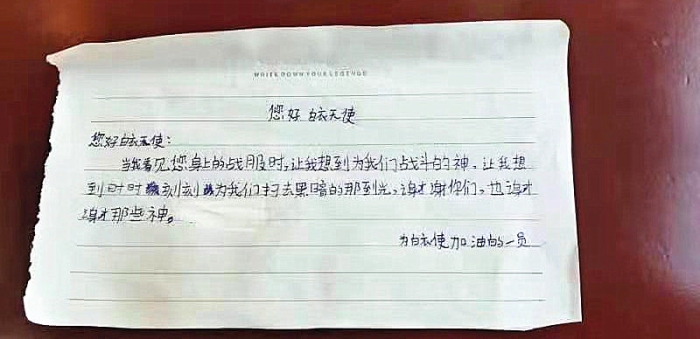 WRITE DOWN YOUR LEGEND
您好 白衣天使
您好白衣天使:
当我看见您身上的战服时,让我想到为我们战斗的神,让我想
到时时刻刻为我们扫去黑暗的那到光,谢谢你们,也谢
谢那些神。
为白衣使加油的一员